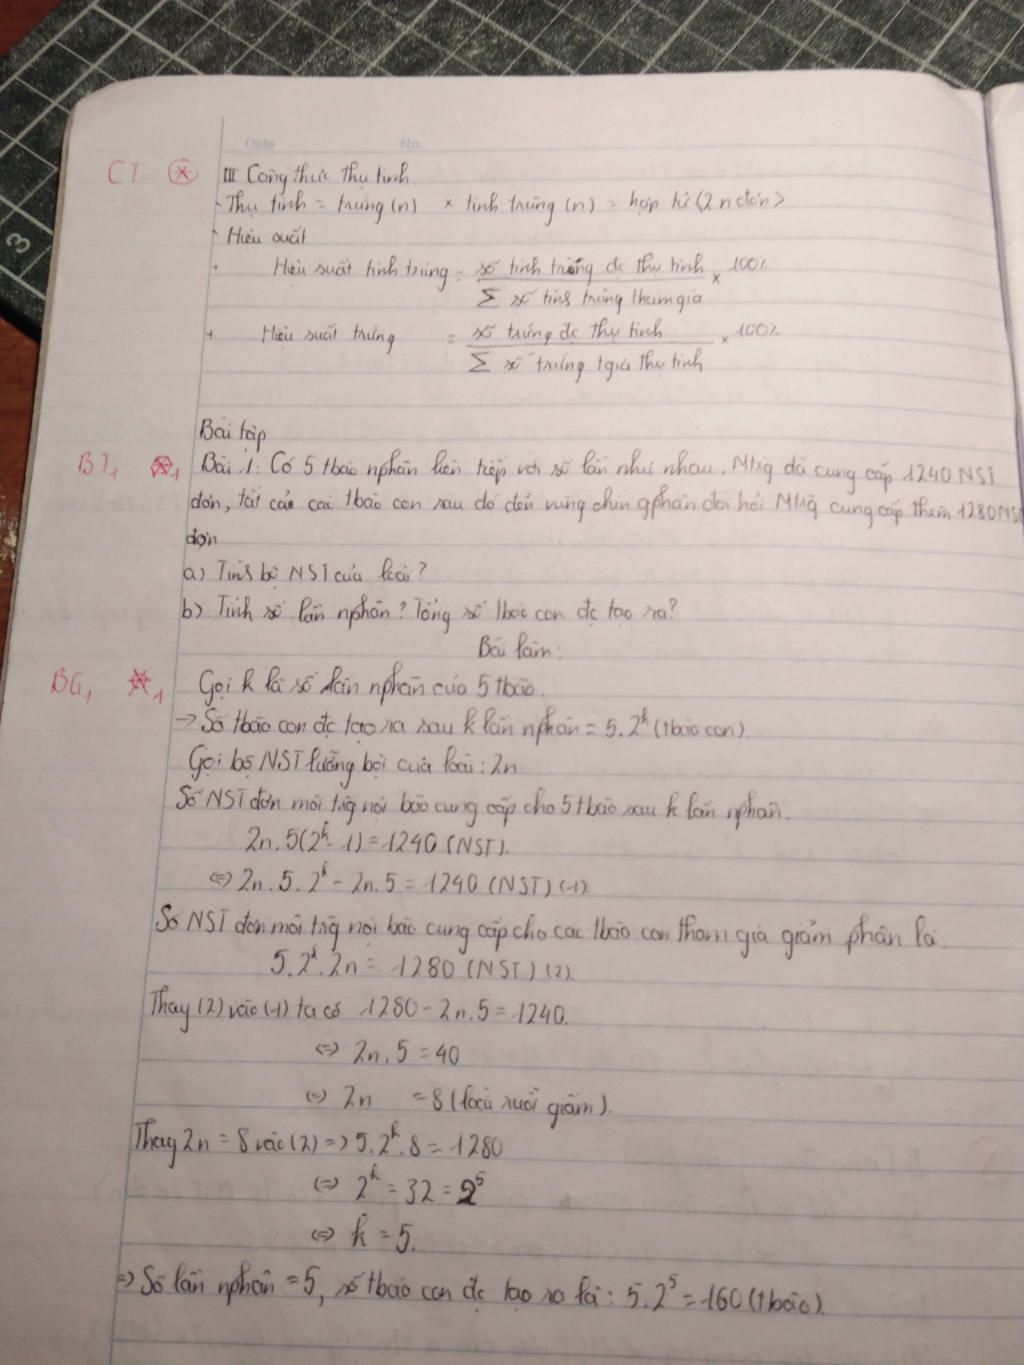 3
Date No.
CT * III Công thức thụ tinh
- Thụ tinh = trứng (n) × tinh trùng (n) = hợp tử (2n đơn)
- Hiệu suất
+ Hiệu suất tinh trùng = số tinh trùng đc thụ tinh / Σ số tinh trùng tham gia × 100%
+ Hiệu suất trứng = số trứng đc thụ tinh / Σ số trứng tgia thụ tinh × 100%
Bài tập
BT1 *1 Bài 1: Có 5 tbào nphân liên tiếp với số lần như nhau. Mtrg đã cung cấp 1240 NST
đơn, tất cả các tbào con sau đó đến vùng chín gphân đòi hỏi Mtrg cung cấp thêm 1280 NST
đơn
a) Tính bộ NST của loài?
b) Tính số lần nphân? Tổng số tbào con đc tạo ra?
Bài làm:
BG1 *1 Gọi k là số lần nphân của 5 tbào.
→ Số tbào con đc tạo ra sau k lần nphân = 5.2^k (tbào con).
Gọi bộ NST lưỡng bội của loài: 2n
Số NST đơn môi trg nội bào cung cấp cho 5 tbào sau k lần nphân.
2n.5(2^k - 1) = 1240 (NST).
⇔ 2n.5.2^k - 2n.5 = 1240 (NST) (1)
Số NST đơn môi trg nội bào cung cấp cho các tbào con tham gia giảm phân là.
5.2^k.2n = 1280 (NST) (2).
Thay (2) vào (1) ta có 1280 - 2n.5 = 1240.
⇔ 2n.5 = 40
⇔ 2n = 8 (loài ruồi giấm).
Thay 2n = 8 vào (2) => 5.2^k.8 = 1280
⇔ 2^k = 32 = 2^5
⇔ k = 5.
=> Số lần nphân = 5, số tbào con đc tạo ra là: 5.2^5 = 160 (tbào).